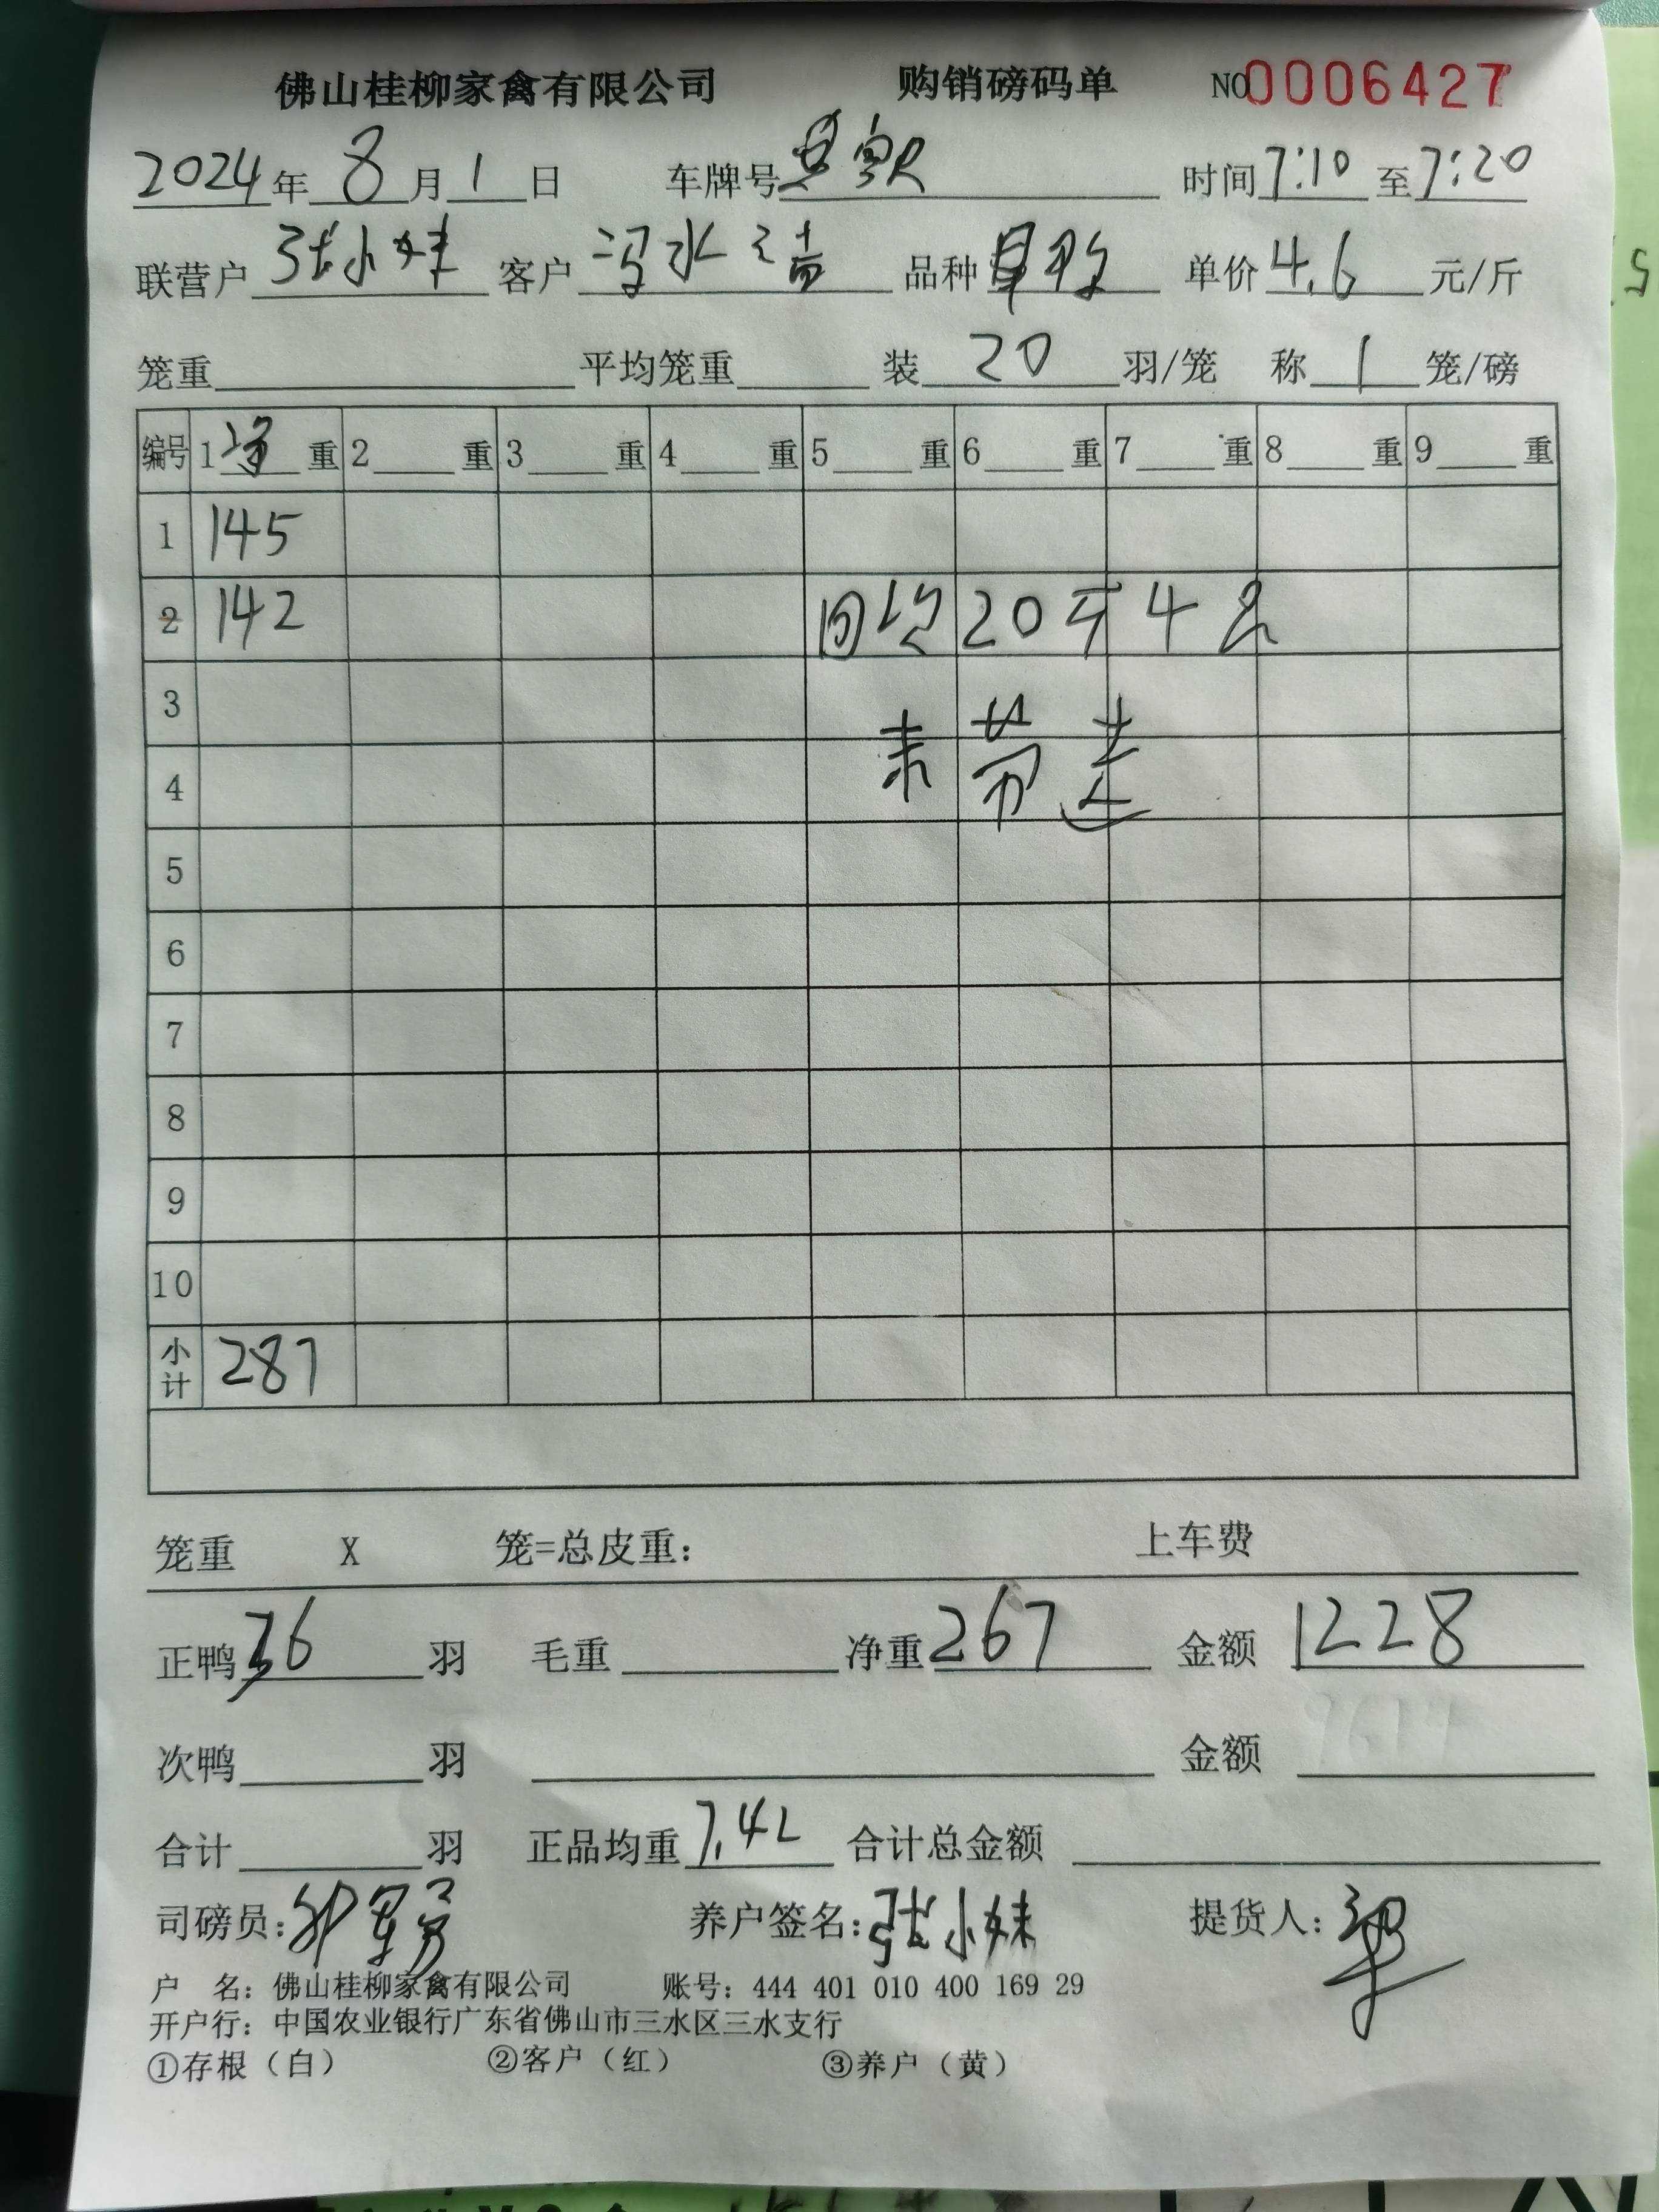 佛山桂柳家禽有限公司 购销磅码单 NO0006427
2024年8月1日 车牌号 时间7:10至7:20
联营户 张小妹 客户 冯水清 品种 单价4.6元/斤
笼重 平均笼重 装 20 羽/笼 称 1 笼/磅
编号 1净重 2 重 3 重 4 重 5 重 6 重 7 重 8 重 9 重
1 145
2 142 回 20斤4只
3
4
5
6
7
8
9
10
小计 287
笼重 X 笼=总皮重: 上车费
正鸭36羽 毛重 净重267 金额 1228
次鸭 羽 金额
合计 羽 正品均重7.42 合计总金额
司磅员: 养户签名:张小妹 提货人:梁
户 名:佛山桂柳家禽有限公司 账号:444 401 010 400 169 29
开户行:中国农业银行广东省佛山市三水区三水支行
①存根(白) ②客户(红) ③养户(黄)